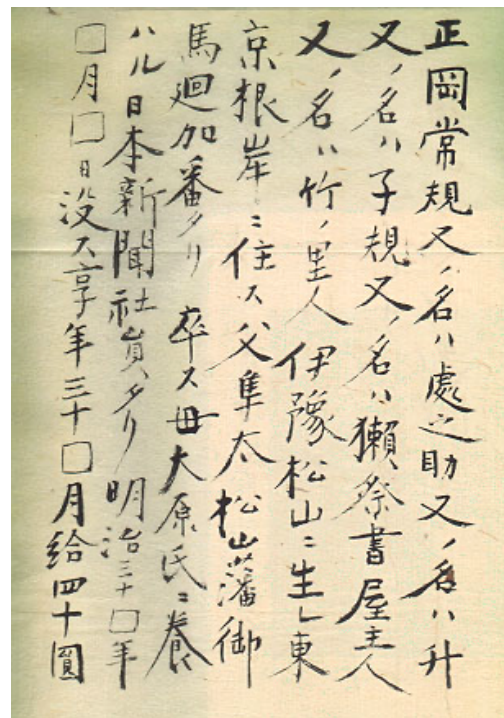 正岡常規又ノ名ハ處之助又ノ名ハ升
又ノ名ハ子規又ノ名ハ獺祭書屋主人
又ノ名ハ竹ノ里人 伊豫松山ニ生レ東
京根岸ニ住ス父隼太松山藩御
馬廻加番タリ 卒ス母大原氏ニ養
ハル日本新聞社員タリ明治三十□年
□月□日没ス享年三十□月給四十圓